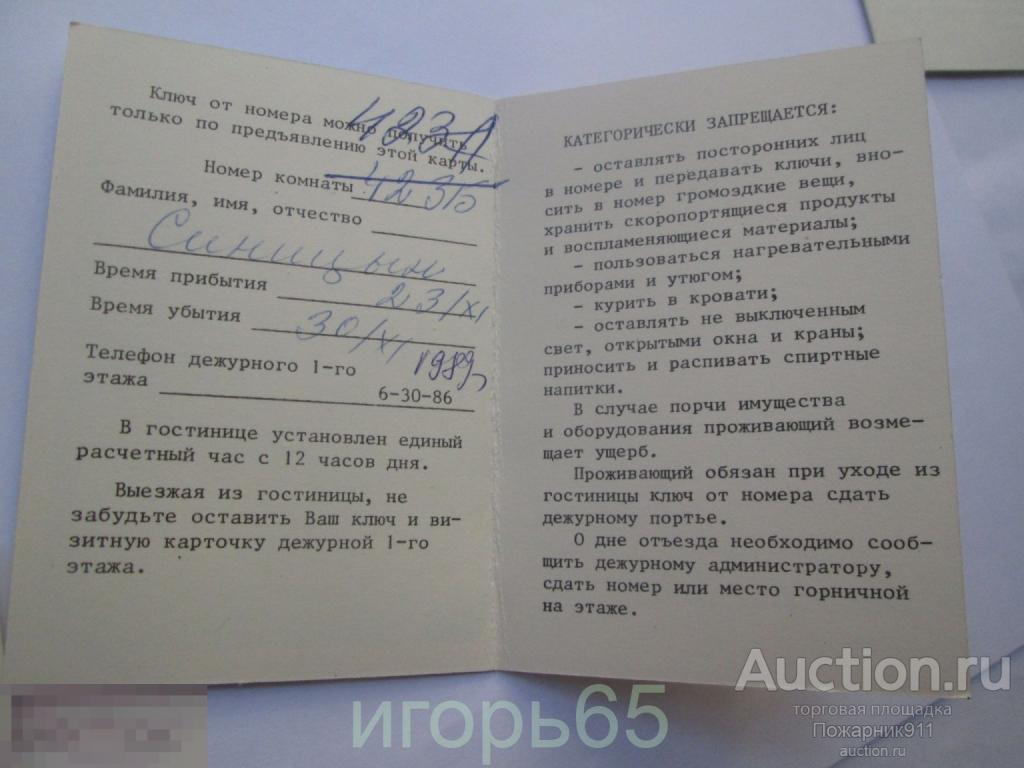 Ключ от номера можно получить
только по предъявлению этой карты.
423А
Номер комнаты 423б
Фамилия, имя, отчество
Синицын
Время прибытия 23/XI
Время убытия 30/XI 1989
Телефон дежурного 1-го
этажа 6-30-86
В гостинице установлен единый
расчетный час с 12 часов дня.
Выезжая из гостиницы, не
забудьте оставить Ваш ключ и ви-
зитную карточку дежурной 1-го
этажа.
КАТЕГОРИЧЕСКИ ЗАПРЕЩАЕТСЯ:
- оставлять посторонних лиц
в номере и передавать ключи, вно-
сить в номер громоздкие вещи,
хранить скоропортящиеся продукты
и воспламеняющиеся материалы;
- пользоваться нагревательными
приборами и утюгом;
- курить в кровати;
- оставлять не выключенным
свет, открытыми окна и краны;
приносить и распивать спиртные
напитки.
В случае порчи имущества
и оборудования проживающий возме-
щает ущерб.
Проживающий обязан при уходе из
гостиницы ключ от номера сдать
дежурному портье.
О дне отъезда необходимо сооб-
щить дежурному администратору,
сдать номер или место горничной
на этаже.
Auction.ru
торговая площадка
Пожарник911
auction.ru
игорь65